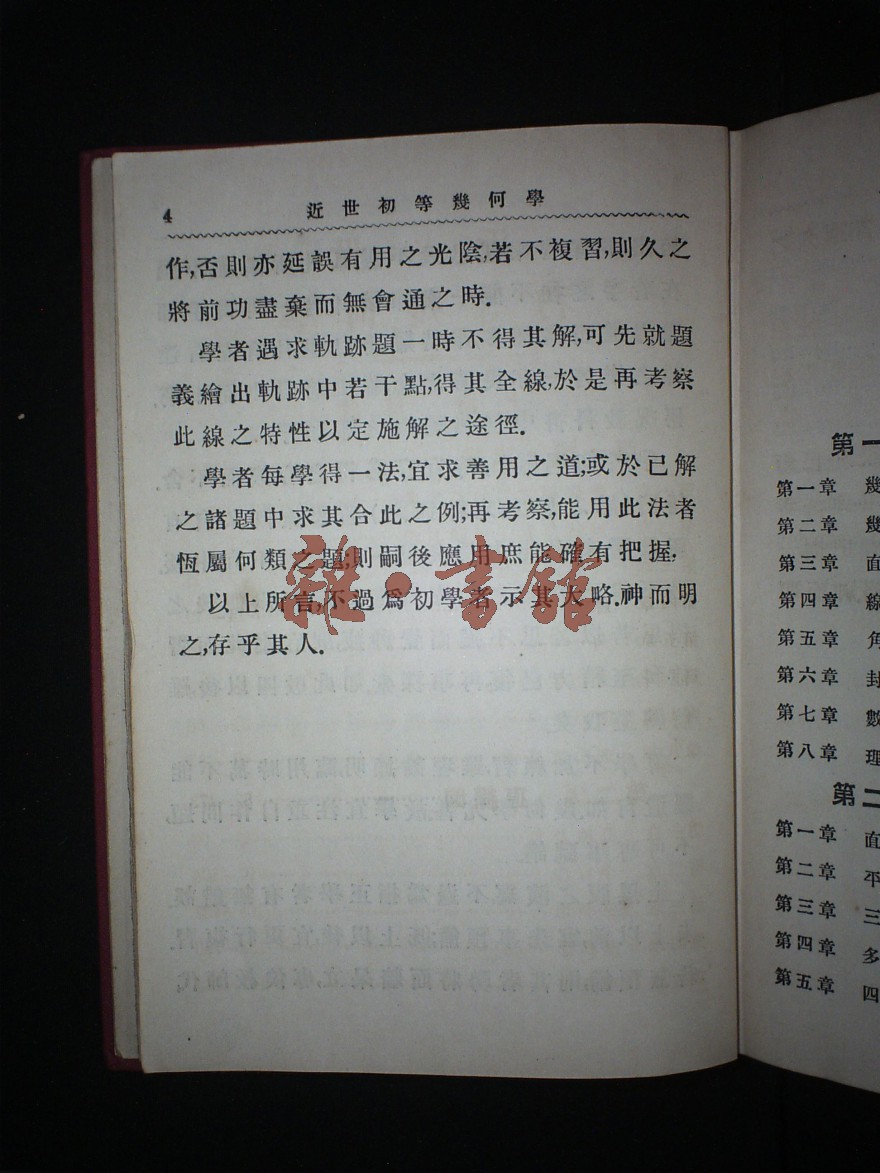 4 近世初等幾何學
作,否則亦延誤有用之光陰,若不複習,則久之
將前功盡棄而無會通之時.
學者遇求軌跡題一時不得其解,可先就題
義繪出軌跡中若干點,得其全線,於是再考察
此線之特性以定施解之途徑.
學者每學得一法,宜求善用之道;或於已解
之諸題中求其合此之例;再考察,能用此法者
恆屬何類之題;則嗣後應用庶能確有把握.
以上所言,不過爲初學者示其大略.神而明
之,存乎其人.
雜·書館
第一
第一章 幾
第二章 幾
第三章 面
第四章 線
第五章 角
第六章 封
第七章 數
第八章 理
第二
第一章 面
第二章 平
第三章 三
第四章 多
第五章 四